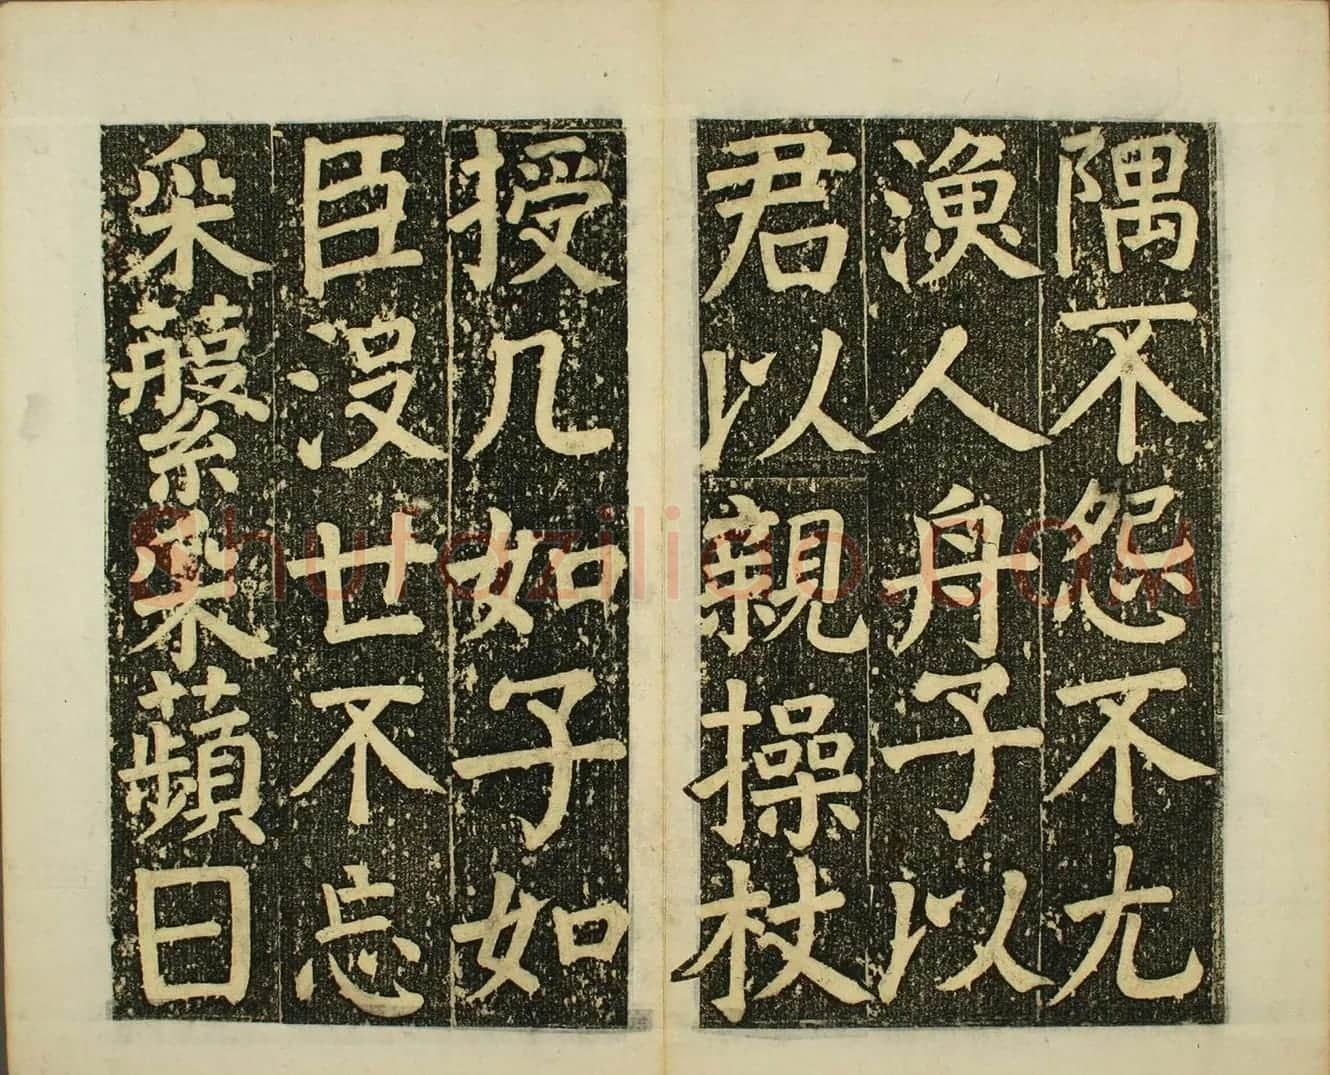 隅不怨不尤
漁人舟子以
君以親操杖
授几如子如
臣没世不忘
采蘩采蘋曰
Shufaziliao.COM